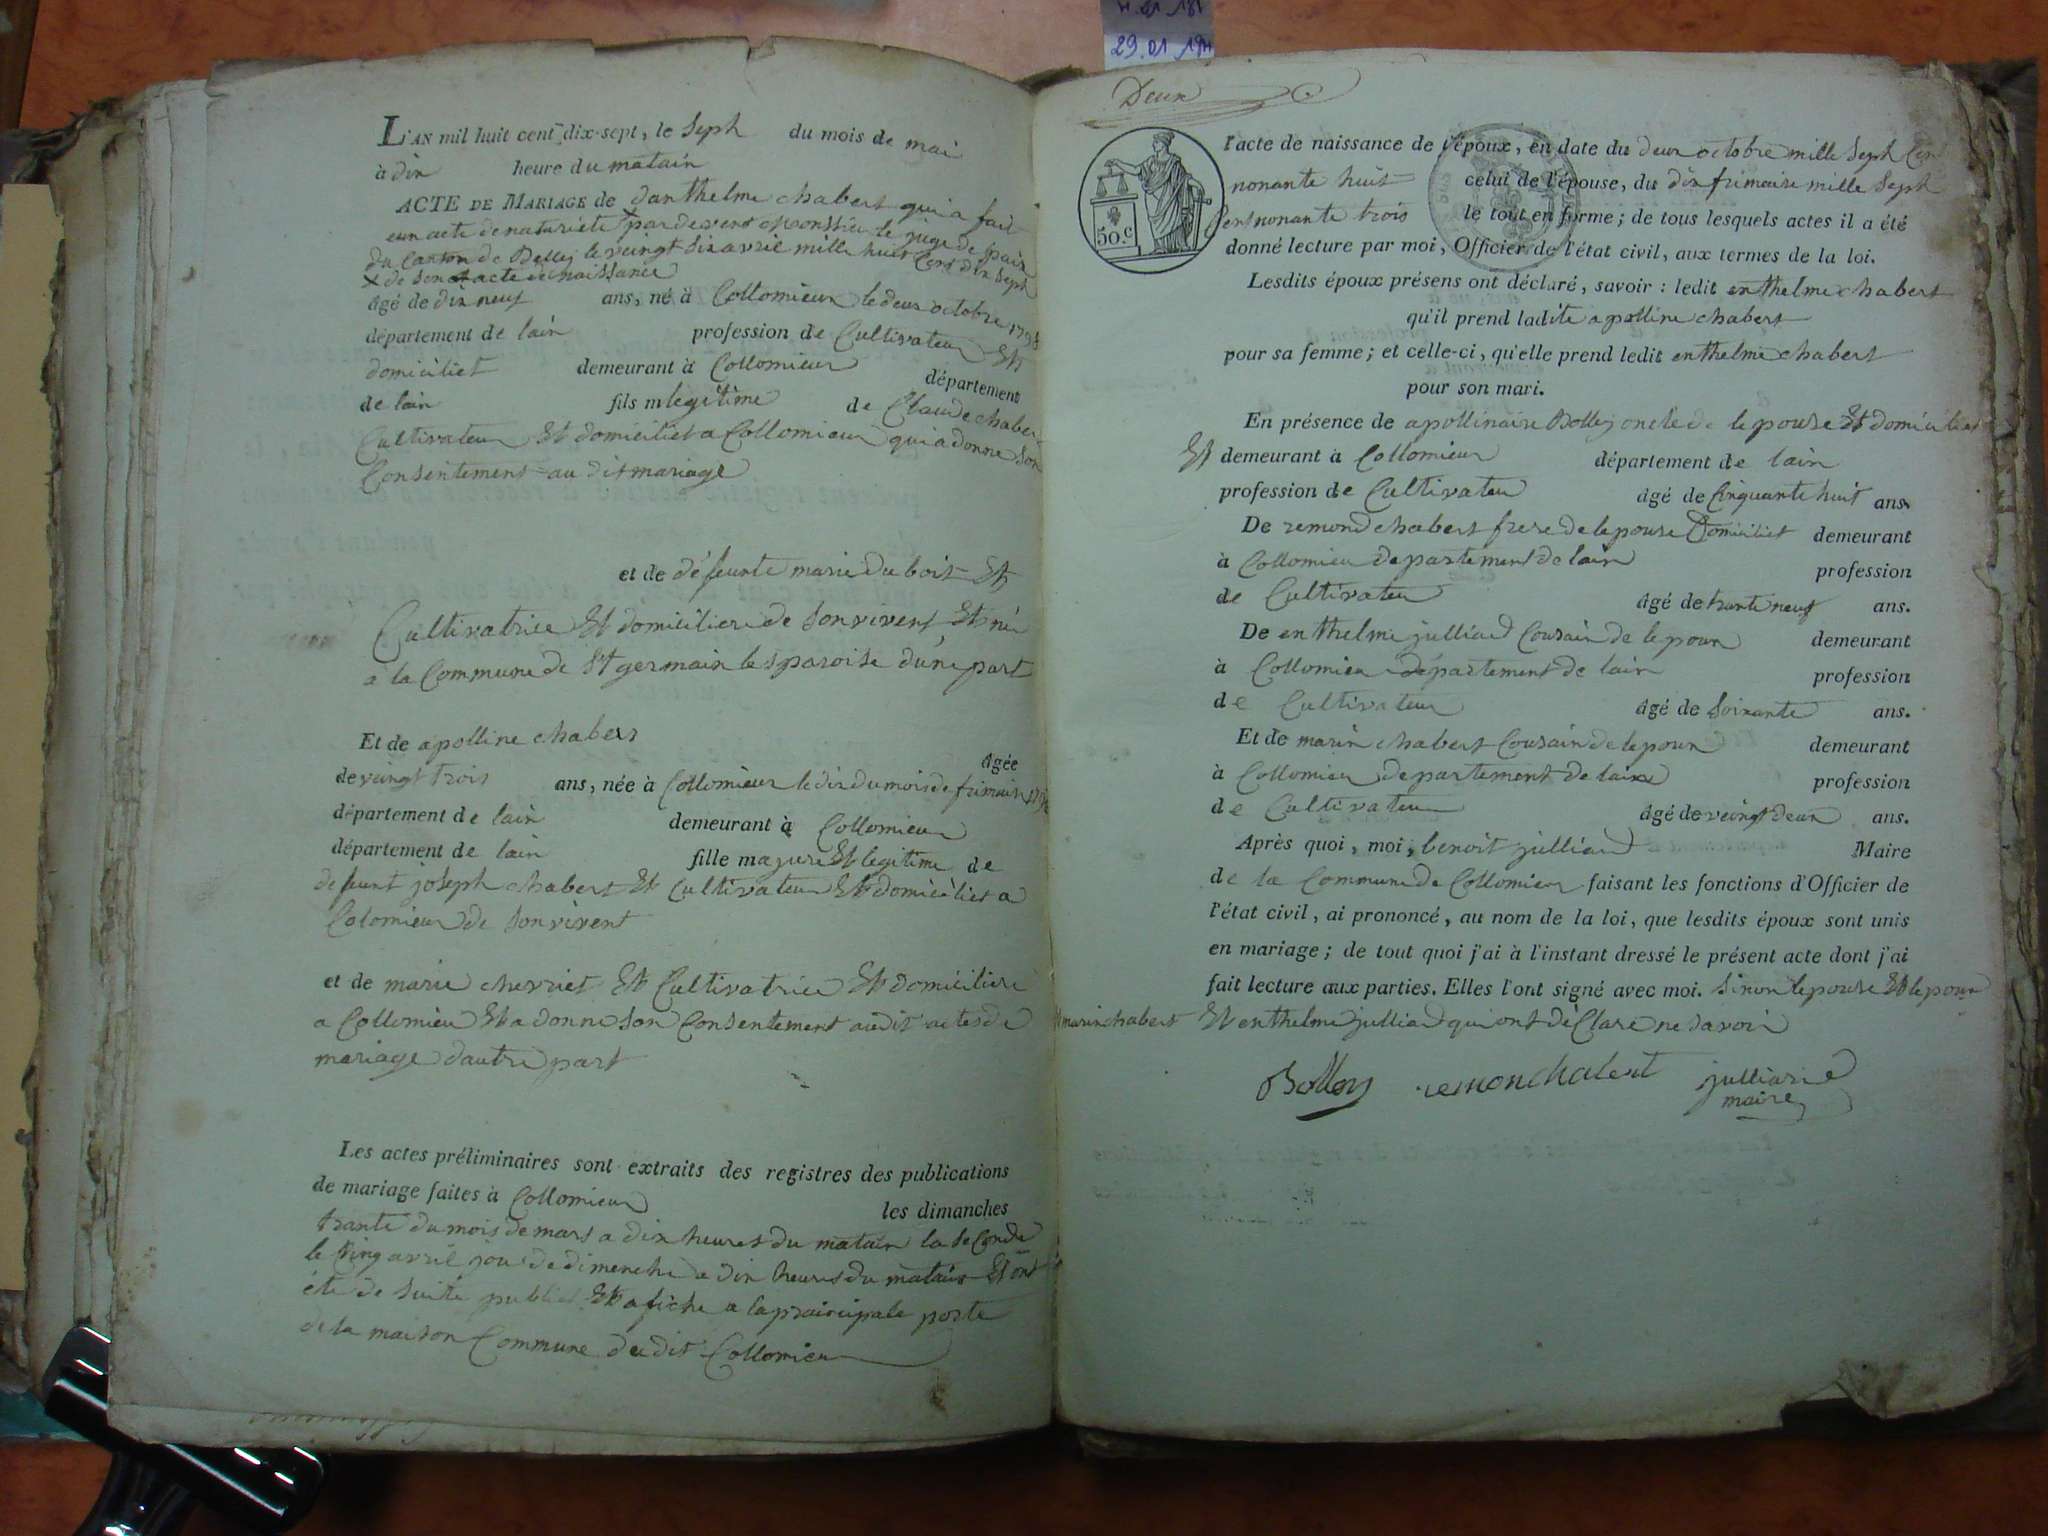 29.01.19
L'AN mil huit cent dix-sept, le Seph du mois de mai
à dix heure du matain
ACTE DE MARIAGE de danthelme chabert qui a fait
eun acte de naturiete par devens monssieu le juge de paix
du Canton de Belley le veingt six avril mille huit Cens dix Seph
× de Son acte de naissance
âgé de dix neuf ans, né à Collomieux le deux octobre 1798
département de lain profession de Cultivateur Et
domiciliet demeurant à Collomieux département
de lain fils m legitime de Claude chabert
Cultivateur Et domiciliet a Collomieux qui a donne Son
Consentement au dit mariage
et de défeunte marie du bois Et
Cultivatrice Et domiciliere de Son vivent Et né
a la Commune de St germain les paroise dune part
Et de apolline chabert
âgée
de veingt trois ans, née à Collomieux le dix du mois de frimair
département de lain demeurant à Collomieux
département de lain fille majure Et legitime de
defeunt joseph chabert Et Cultivateur Et domiciliet a
Colomieux de Son vivent
et de marie cherriet Et Cultivatrice Et domiciliere
a Collomieu Et a donne Son Consentement audit actes de
mariage dautre part
Les actes préliminaires sont extraits des registres des publications
de mariage faites à Collomieux les dimanches
trante du mois de mars a dix heures du matain la Seconde
le Sing avril jour de dimenche a dix heures du matain Et ont
ete de Suite publiet Et afiche a la praincipale porte
de la maison Commune du dit Collomieu
Deux
50.c
l'acte de naissance de l'époux, en date du deux octobre mille Seph Cent
nonante huit celui de l'épouse, du dix frimaire mille Seph
Cent nonante trois le tout en forme; de tous lesquels actes il a été
donné lecture par moi, Officier de l'état civil, aux termes de la loi.
Lesdits époux présens ont déclaré, savoir: ledit enthelme chabert
qu'il prend ladite apolline chabert
pour sa femme; et celle-ci, qu'elle prend ledit enthelme chabert
pour son mari.
En présence de apollinaire Bolley oncle de lepouse Et domiciliet
Et demeurant à Collomieux département de lain
profession de Cultivateu âgé de Cinquante huit ans.
De remond chabert frere de lepouse Domiciliet demeurant
à Collomieu departement de lain profession
de Cultivateu âgé de trante neuf ans.
De enthelme julliard Cousain de lepoux demeurant
à Collomieu département de lain profession
de Cultivateur âgé de Soixante ans.
Et de marin chabert Cousain de lepoux demeurant
à Collomieu departement de lain profession
de Cultivateur âgé de veingt deux ans.
Après quoi, moi, benoit julliard Maire
de la Commune de Collomieu faisant les fonctions d'Officier de
l'état civil, ai prononcé, au nom de la loi, que lesdits époux sont unis
en mariage; de tout quoi j'ai à l'instant dressé le présent acte dont j'ai
fait lecture aux parties. Elles l'ont signé avec moi. Sinon lepouse Et lepoux
marin chabert Et enthelme julliard qui ont déClare ne Savoir
Bolley remon chabert julliard
maire